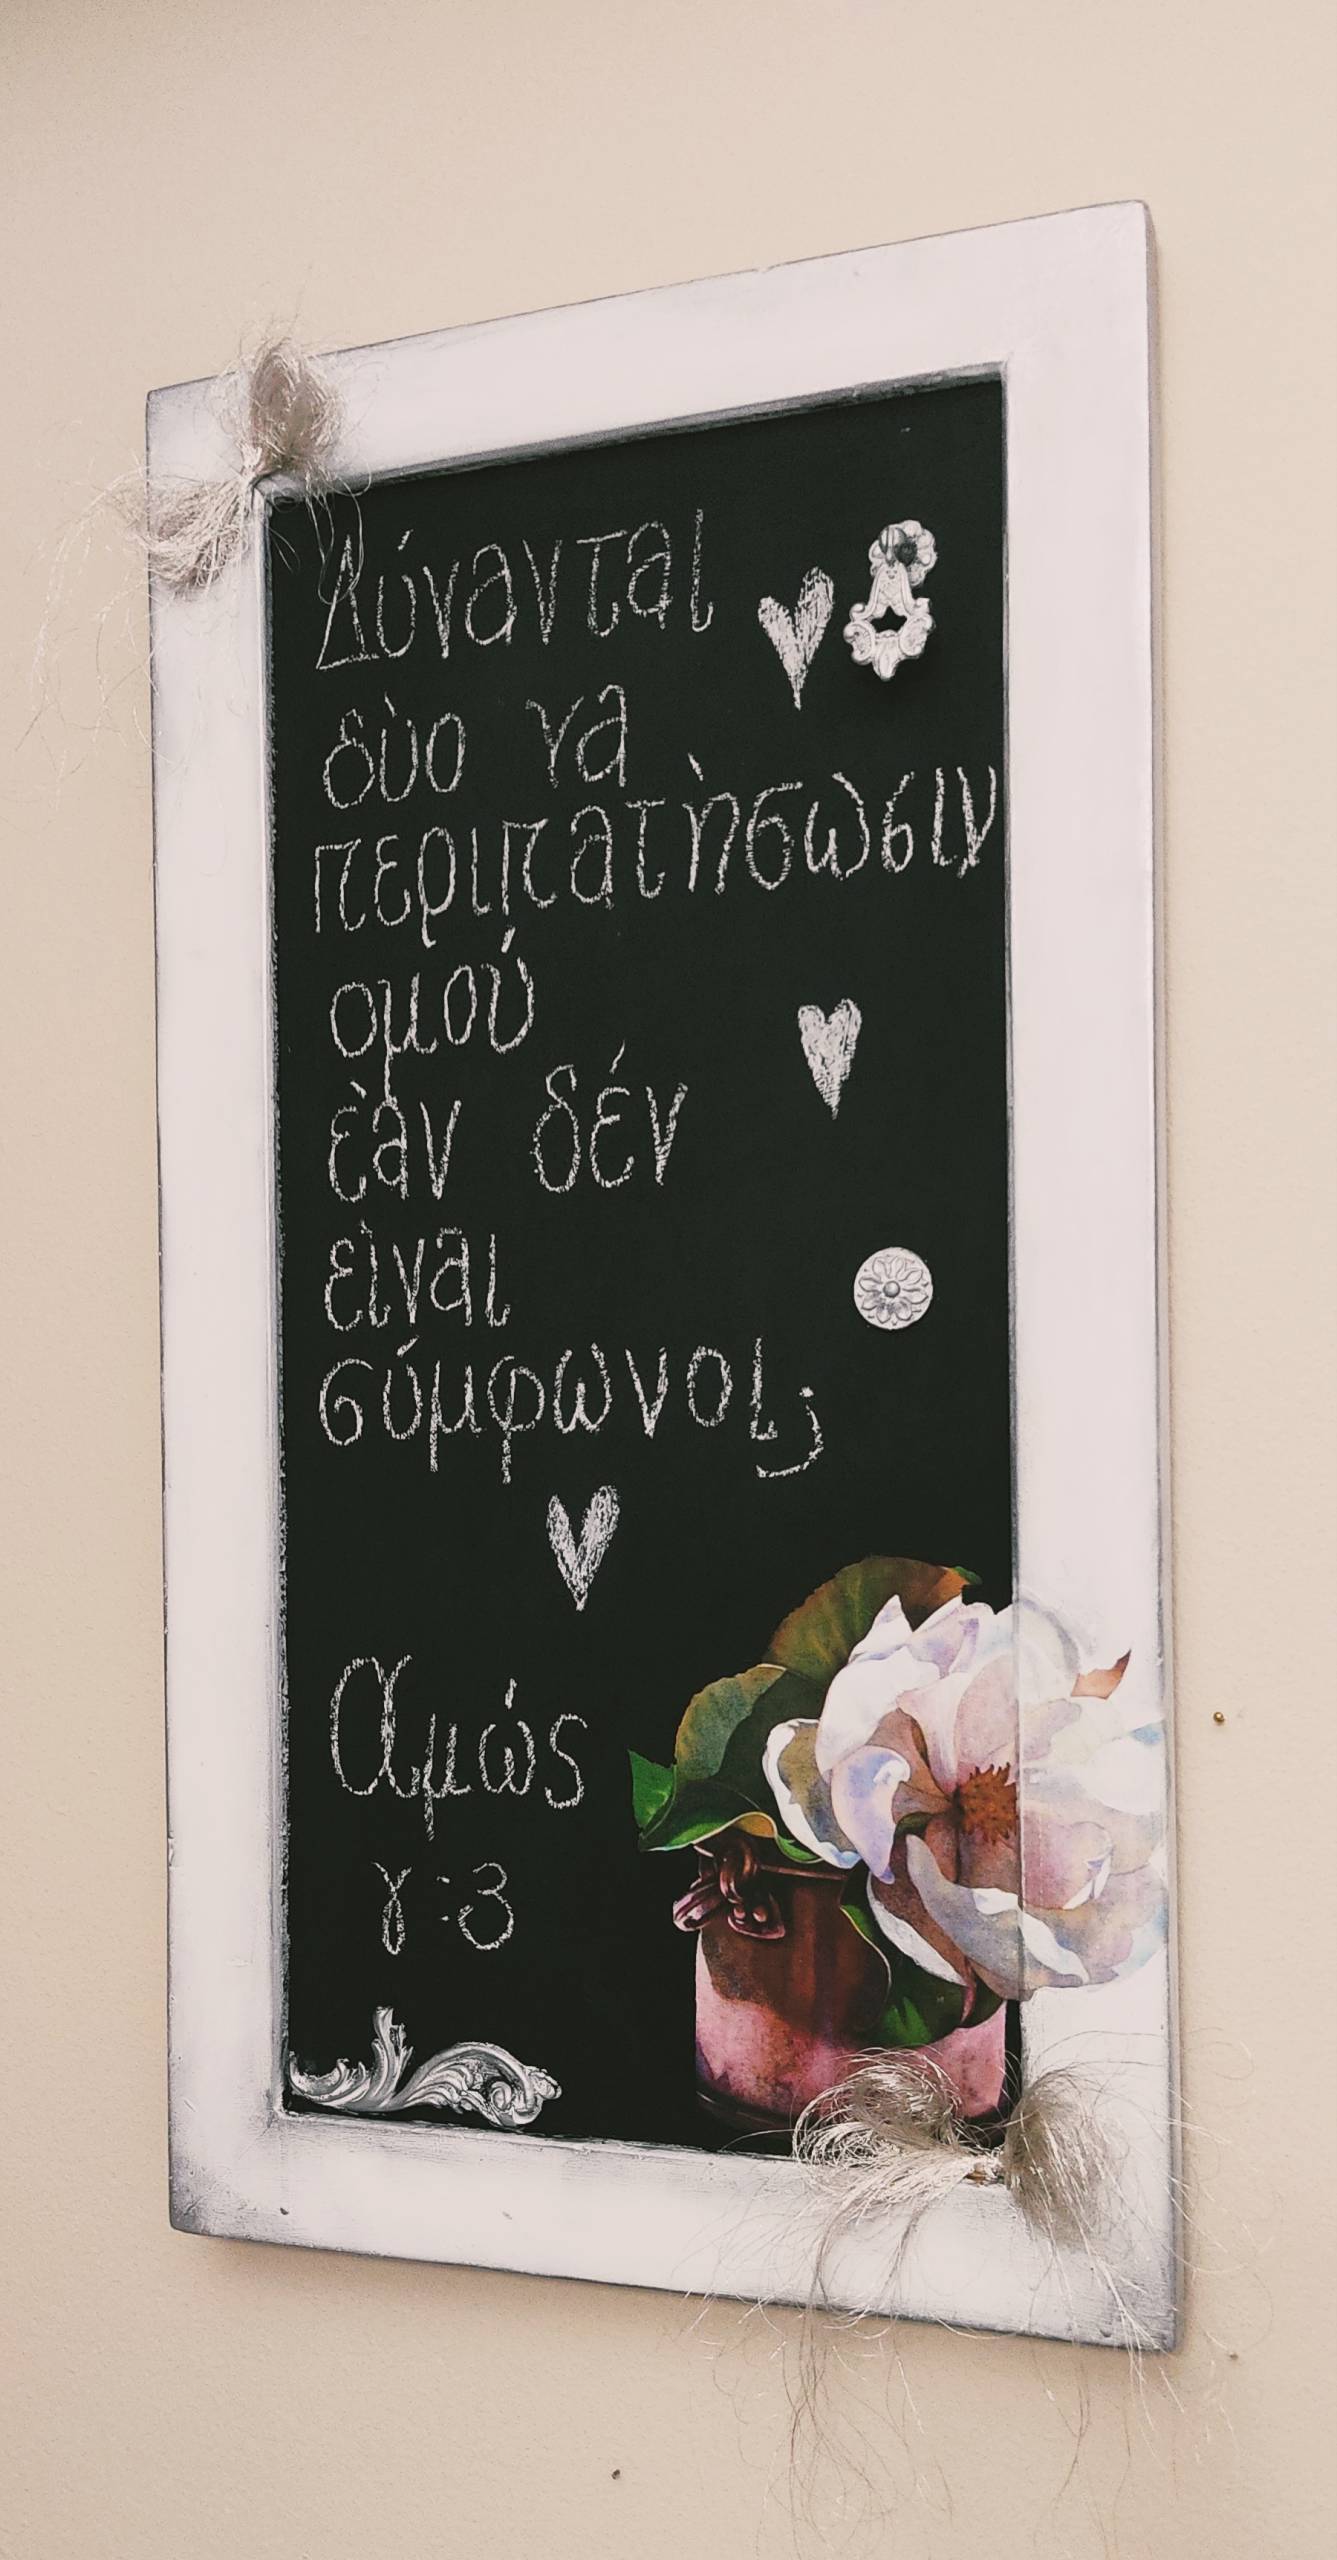 Δύνανται
δὺο να
περιπατὴσωσιν
ομού
ἐὰν δέν
εἰναι
σύμφωνοι;
Αμώς
γ:3